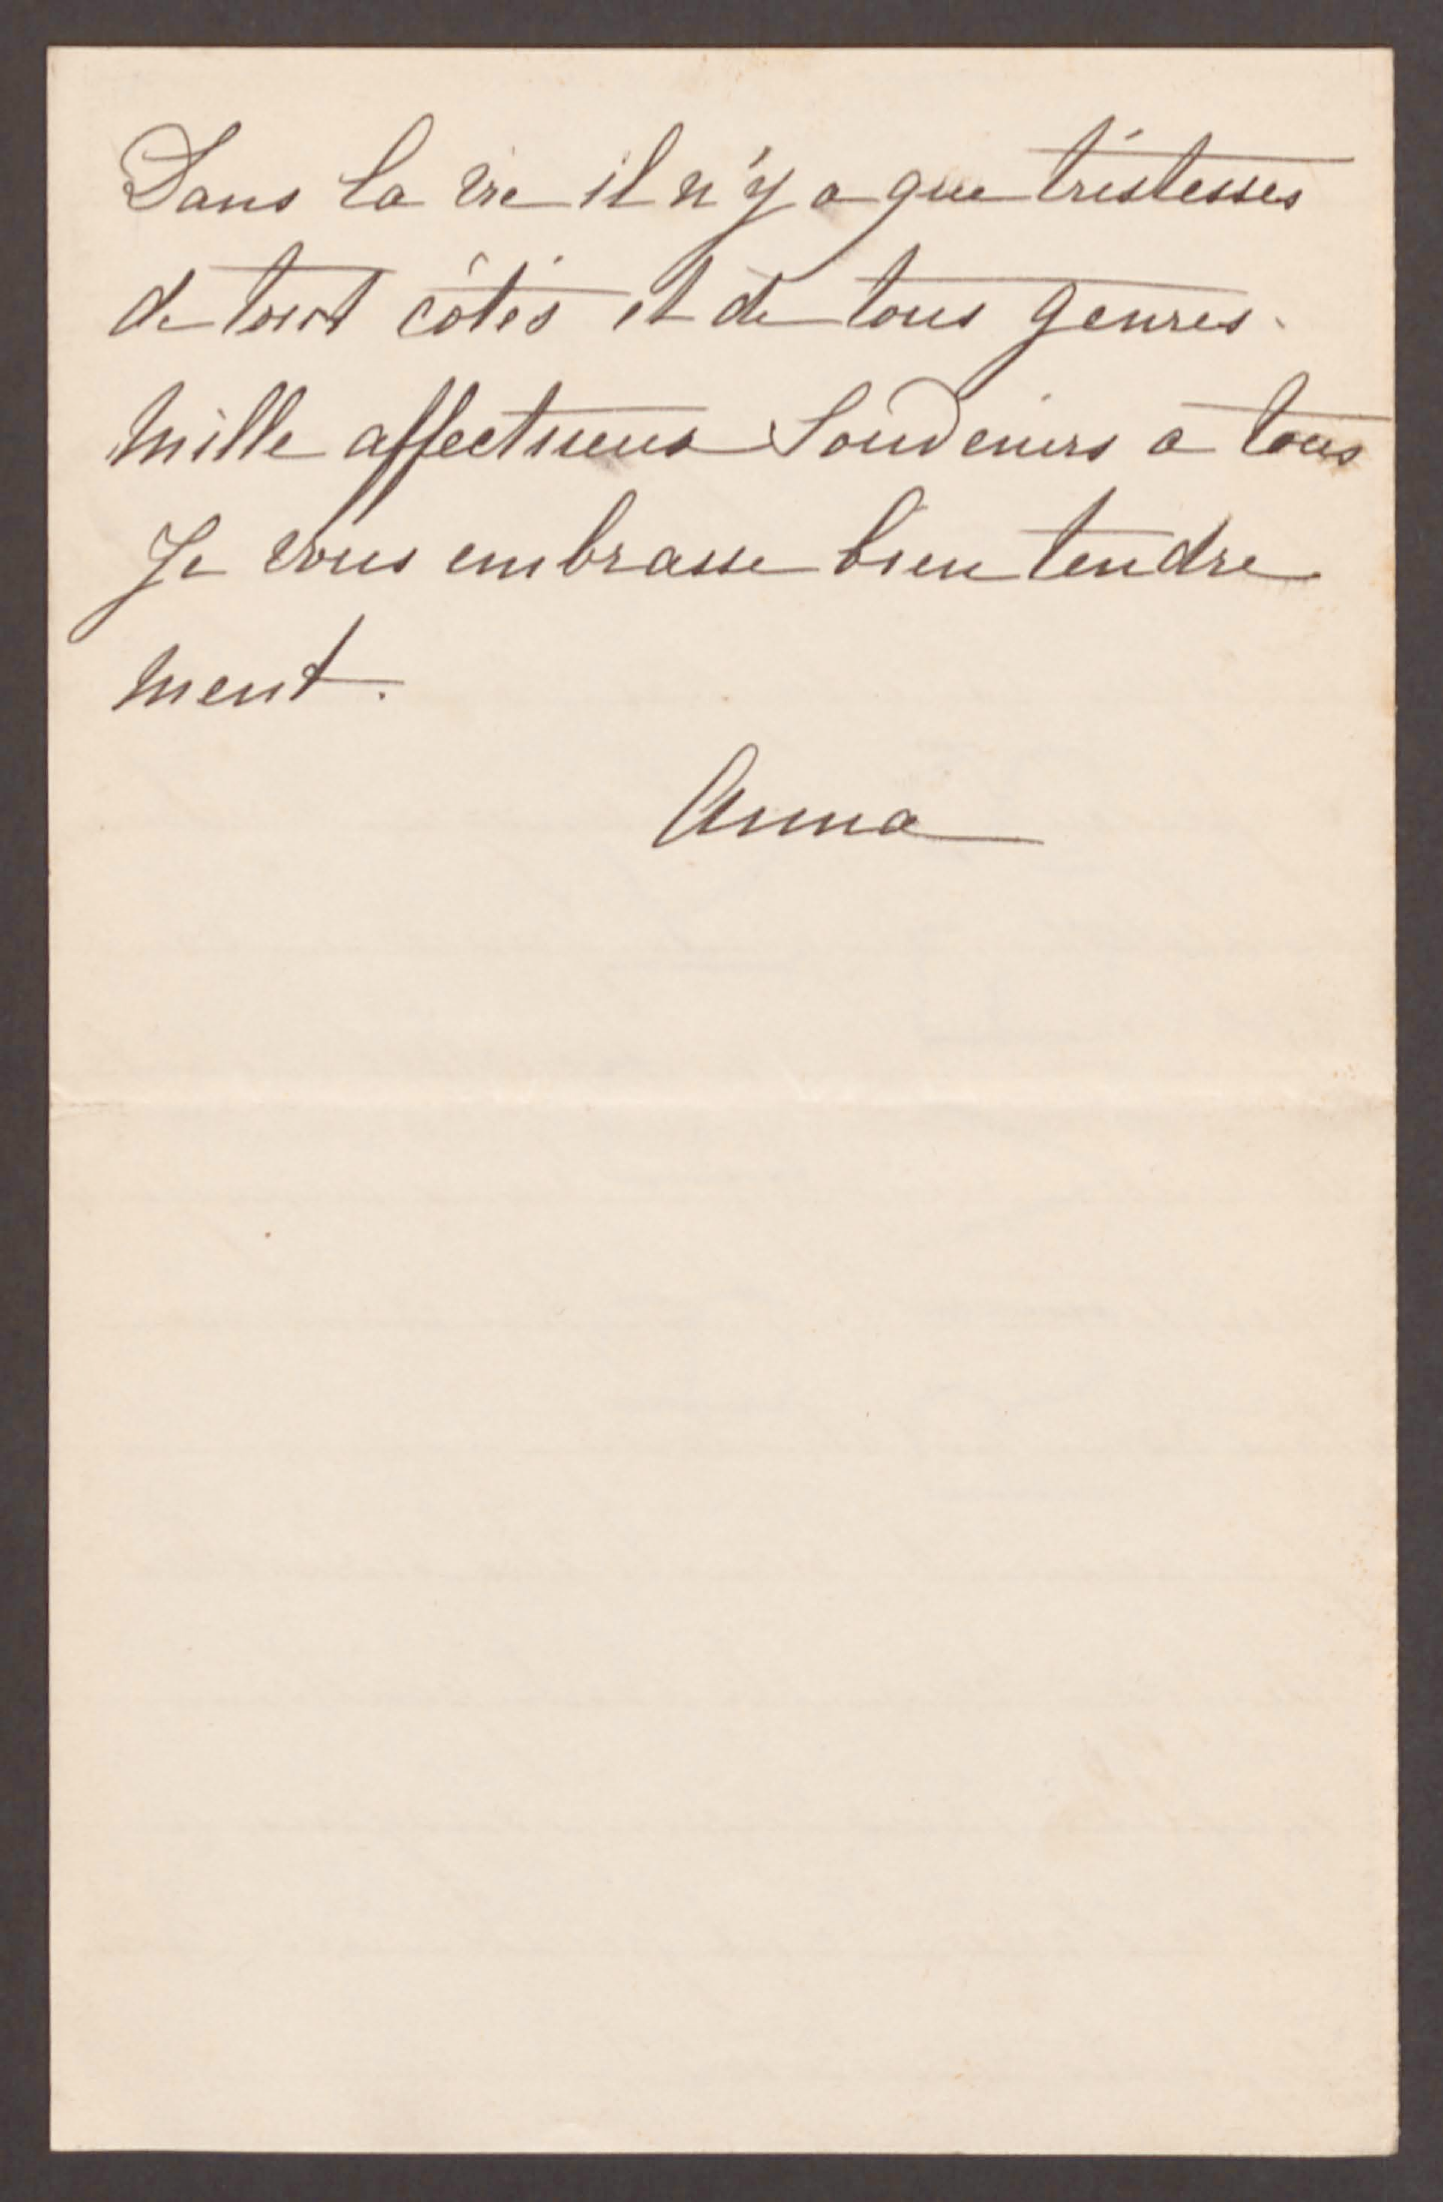 Dans la vie il n'y a que tristesses
de tout côtés et de tous genres.
Mille affectueux Souvenirs a tous
Je vous embrasse bien tendre
ment.
Anna